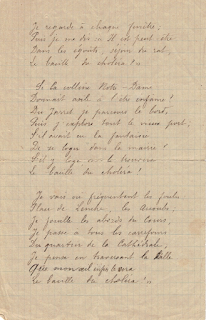 Je regarde à chaque fenêtre,
Puis je me dis : Il est peut-être
Dans les égouts, séjour du rat,
Le bacille du choléra !..
Si la colline Notre-Dame
Donnait asile à cet infâme !
Du Jarret je parcours le bord,
Puis j'explore tout le vieux port,
S'il avait eu la fantaisie
De se loger dans la mairie !
S'il y loge on l'y trouvera
Le bacille du choléra !..
Je vais en fréquentant les foules,
Place de Lenche, les Accoules,
Je fouille les abords du Cours,
Je passe à tous les carrefours
Du quartier de la Cathédrale,
Je pense en traversant la Halle
Le bacille du choléra !..